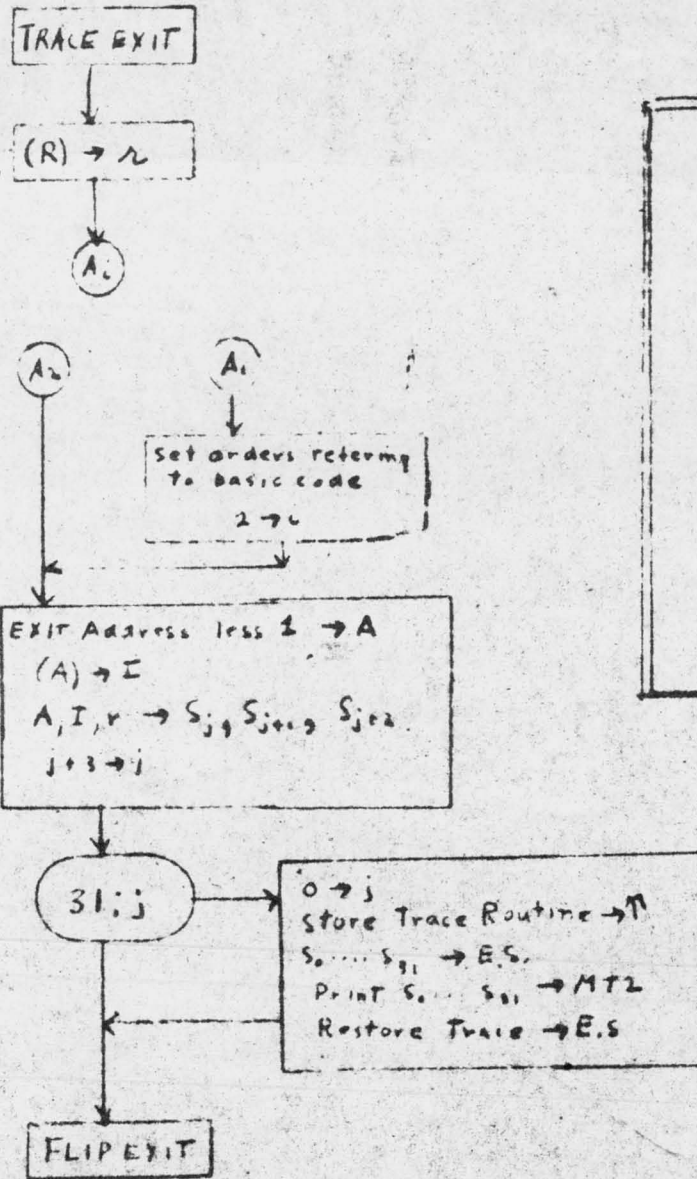 TRACE EXIT
(R) → r
Ai
A2
A1
Set orders refering
to basic code
2 → i
EXIT Address less 1 → A
(A) → I
A, I, r → Sj, Sj+1, Sj+2
j+3 → j
31; j
0 → j
Store Trace Routine →
S0 .... S31 → E.S.
Print S0 ... S31 → MT2
Restore Trace → E.S
FLIP EXIT